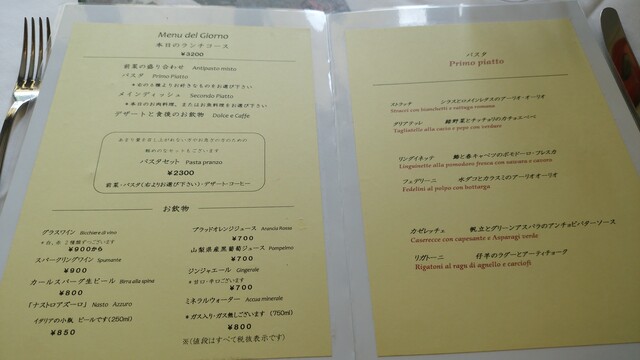 Menu del Giorno
本日のランチコース
¥3200
前菜の盛り合わせ Antipasto misto
パスタ Primo Piatto
＊右の6種よりお好きなものをお選び下さい
メインディッシュ Secondo Piatto
＊本日のお肉料理、またはお魚料理をお選び下さい
デザートと食後のお飲物 Dolce e Caffe
あまり量を召し上がれないオのお客さまのための
軽めのセットもございます
パスタセット Pasta pranzo
¥2300
前菜・パスタ(右よりお選び下さい)・デザート・コーヒー
お飲物
グラスワイン Bicchiere di vino
＊白、赤 2種類ずつございます
¥900から
スパークリングワイン Spumante
¥900
カールスバーグ生ビール Birra alla spina
¥800
「ナストロアズーロ」 Nasto Azzuro
イタリアの小瓶ビールです(250ml)
¥850
ブラッドオレンジジュース Arancia Rossa
¥700
山梨県産黒葡萄ジュース Pompelmo
¥700
ジンジャエール Gingerale
＊甘口・辛口ございます
¥700
ミネラルウォーター Acqua minerale
＊ガス入り・ガス無しございます (750ml)
¥800
※(値段はすべて税抜表示です)
パスタ
Primo piatto
ストラッチ シラスとロメインレタスのアーリオ・オーリオ
Stracci con bianchetti e lattuga romana
タリアテッレ 緑野菜とチッチョリのカチョエペペ
Tagliatelle alla cacio e pepe con verdure
リングイネッテ 鮪と春キャベツのポモドーロ・フレスカ
Linguinette alla pomodoro fresca con
フェデリーニ 水ダコとカラスミのアーリオオーリオ
Fedelini al polpo con bottarga
カゼレッチェ 帆立とグリーンアスパラのアンチョビバターソース
Caserecce con capesante e Asparagi verde
リガトーニ 仔羊のラグーとアーティチョーク
Rigatoni al ragu di agnello e carciofi